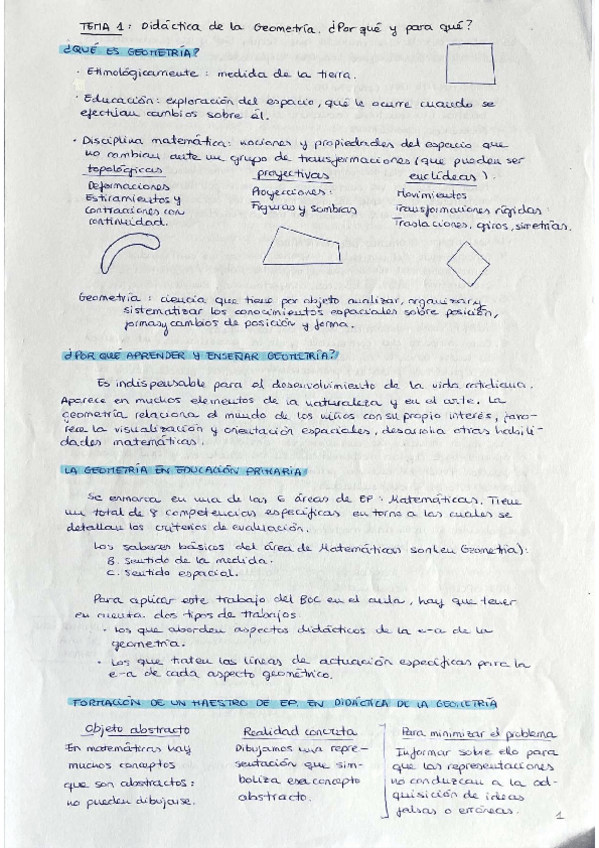 TEMA 1: Didáctica de la Geometría. ¿Por qué y para qué?
¿QUÉ ES GEOMETRÍA?
· Etimológicamente: medida de la tierra.
· Educación: exploración del espacio, qué le ocurre cuando se
efectúan cambios sobre él.
· Disciplina matemática: nociones y propiedades del espacio que
no cambian ante un grupo de transformaciones (que pueden ser
topológicas proyectivas euclídeas).
Deformaciones Proyecciones: Movimientos
Estiramientos y Figuras y sombras Transformaciones rígidas:
contracciones con Traslaciones, giros, simetrías.
continuidad.
Geometría: ciencia que tiene por objeto analizar, organizar y
sistematizar los conocimientos espaciales sobre posición,
forma y cambios de posición y forma.
¿POR QUÉ APRENDER Y ENSEÑAR GEOMETRÍA?
Es indispensable para el desenvolvimiento de la vida cotidiana.
Aparece en muchos elementos de la naturaleza y en el arte. La
geometría relaciona el mundo de los niños con su propio interés, favo-
rece la visualización y orientación espaciales, desarrolla otras habili-
dades matemáticas.
LA GEOMETRÍA EN EDUCACIÓN PRIMARIA
Se enmarca en una de las 6 áreas de EP: Matemáticas. Tiene
un total de 8 competencias específicas en torno a las cuales se
detallan los criterios de evaluación.
Los saberes básicos del área de Matemáticas son (en Geometría):
B. Sentido de la medida.
C. Sentido espacial.
Para aplicar este trabajo del BOC en el aula, hay que tener
en cuenta dos tipos de trabajos:
· Los que aborden aspectos didácticos de la e-a de la
geometría.
· Los que traten las líneas de actuación específicas para la
e-a de cada aspecto geométrico.
FORMACIÓN DE UN MAESTRO DE EP. EN DIDÁCTICA DE LA GEOMETRÍA
Objeto abstracto Realidad concreta Para minimizar el problema
En matemáticas hay Dibujamos una repre- Informar sobre ello para
muchos conceptos sentación que sim- que las representaciones
que son abstractos: boliza ese concepto no conduzcan a la ad-
no pueden dibujarse. abstracto. quisición de ideas
falsas o erróneas.
1